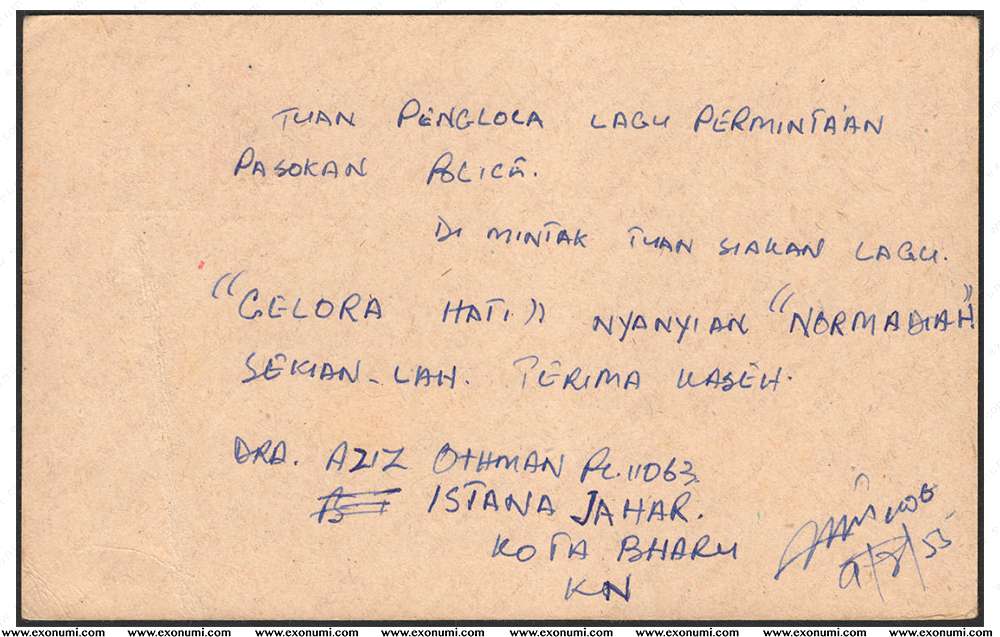 TUAN PENGLOLA LAGU PERMINTA'AN
PASOKAN POLICE.
DI MINTAK TUAN SIAKAN LAGU.
"GELORA HATI" NYANYIAN "NORMADIAH"
SEKIAN-LAH. TERIMA KASEH.
DRA. AZIZ OTHMAN PC.11063.
ISTANA JAHAR.
KOTA BHARU
KN
9/8/55
www.exonumi.com www.exonumi.com www.exonumi.com www.exonumi.com www.exonumi.com www.exonumi.com www.exonumi.com www.exonumi.com